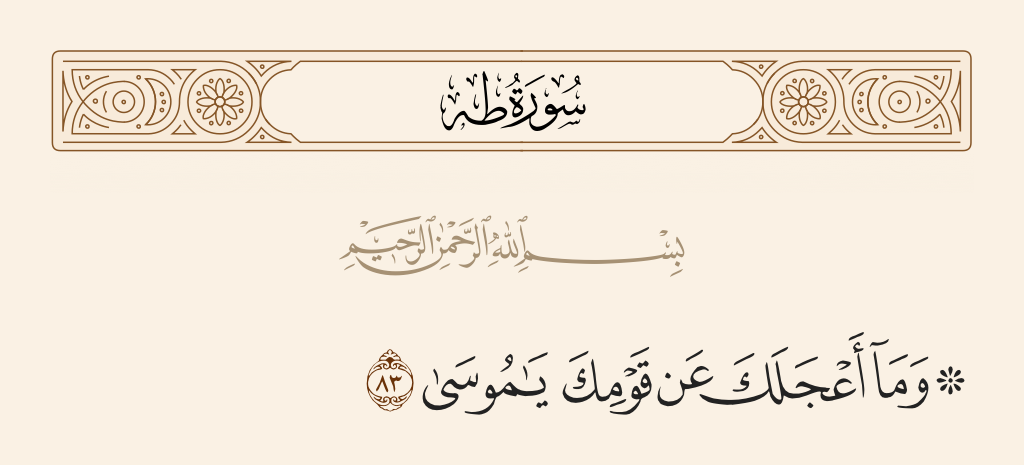 سُورَةُ طه
بِسْمِ ٱللَّهِ ٱلرَّحْمَٰنِ ٱلرَّحِيمِ
۞ وَمَآ أَعْجَلَكَ عَن قَوْمِكَ يَـٰمُوسَىٰ ٨٣